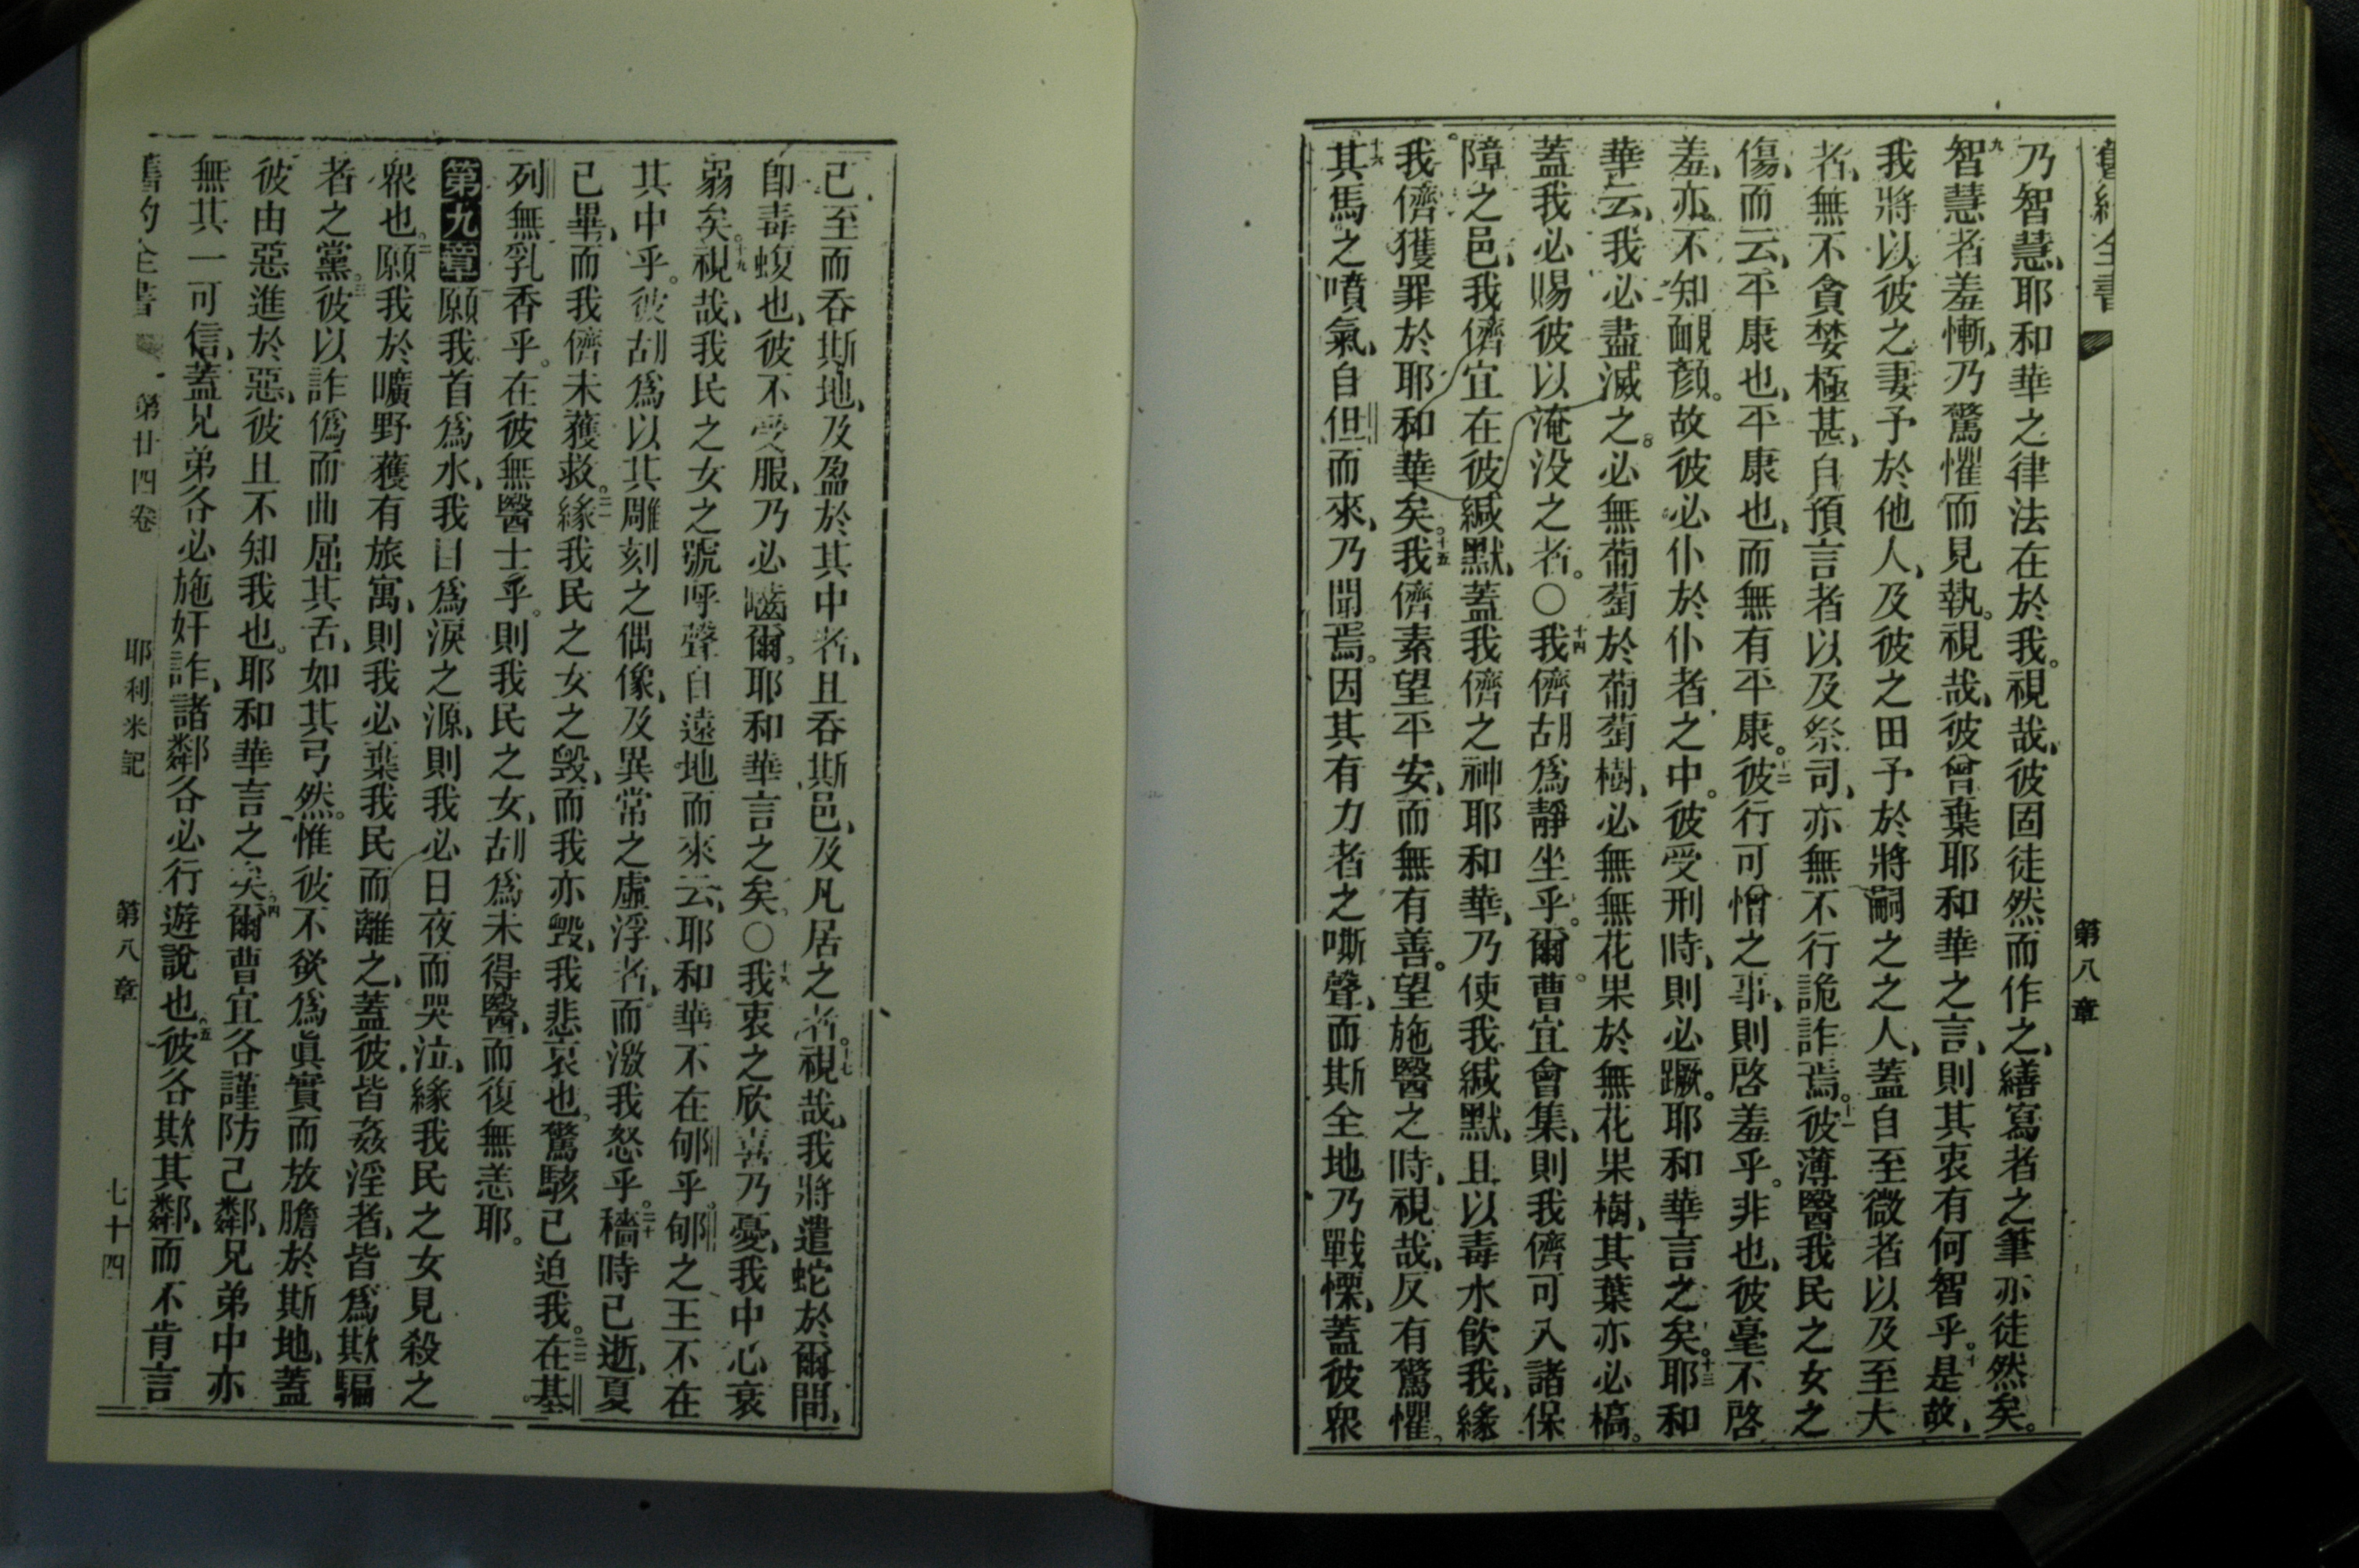 舊約全書
第八章
乃智慧、耶和華之律法在於我。視哉、彼固徒然而作之、繕寫者之筆亦徒然矣。
九智慧者羞慚、乃驚懼而見執。視哉、彼曾棄耶和華之言、則其衷有何智乎。十是故、
我將以彼之妻予於他人、及彼之田予於將嗣之之人、蓋自至微者以及至大
者、無不貪婪極甚、自預言者以及祭司、亦無不行詭詐焉。十一彼薄醫我民之女之
傷、而云、平康也、平康也、而無有平康。十二彼行可憎之事、則啓羞乎。非也、彼毫不啓
羞、亦不知覥顏。故彼必仆於仆者之中。彼受刑時、則必蹶。耶和華言之矣。十三耶和
華云、我必盡滅之。必無葡萄於葡萄樹、必無無花果於無花果樹、其葉亦必槁。
蓋我必賜彼以淹沒之者。○十四我儕胡爲靜坐乎。爾曹宜會集、則我儕可入諸保
障之邑、我儕宜在彼緘默、蓋我儕之神耶和華、乃使我緘默、且以毒水飲我、緣
我儕獲罪於耶和華矣。十五我儕素望平安、而無有善。望施醫之時、視哉、反有驚懼。
十六其馬之噴氣、自但而來、乃聞焉。因其有力者之嘶聲、而斯全地乃戰慄、蓋彼衆
已至而吞斯地、及盈於其中者、且吞斯邑、及凡居之者。十七視哉、我將遣蛇於爾間、
卽毒蝮也、彼不受服、乃必嚙爾。耶和華言之矣。○十八我衷之欣喜乃憂、我中心衰
弱矣。十九視哉、我民之女之號呼聲自遠地而來云、耶和華不在郇乎。郇之王不在
其中乎。彼胡爲以其雕刻之偶像、及異常之虛浮者、而激我怒乎。二十穡時已逝、夏
已畢、而我儕未獲救。二一緣我民之女之毀、而我亦毀、我悲哀也。驚駭已迫我。二二在基
列無乳香乎。在彼無醫士乎。則我民之女、胡爲未得醫、而復無恙耶。
第九章一願我首爲水、我目爲淚之源、則我必日夜而哭泣、緣我民之女見殺之
衆也。二願我於曠野獲有旅寓、則我必棄我民而離之、蓋彼皆姦淫者、皆爲欺騙
者之黨。三彼以詐僞而曲屈其舌、如其弓然。惟彼不欲爲眞實而放膽於斯地、蓋
彼由惡進於惡、彼且不知我也。耶和華言之矣。四爾曹宜各謹防己鄰、兄弟中亦
無其一可信、蓋兄弟各必施奸詐、諸鄰各必行遊說也。五彼各欺其鄰、而不肯言
舊約全書
第廿四卷
耶利米記
第八章
七十四